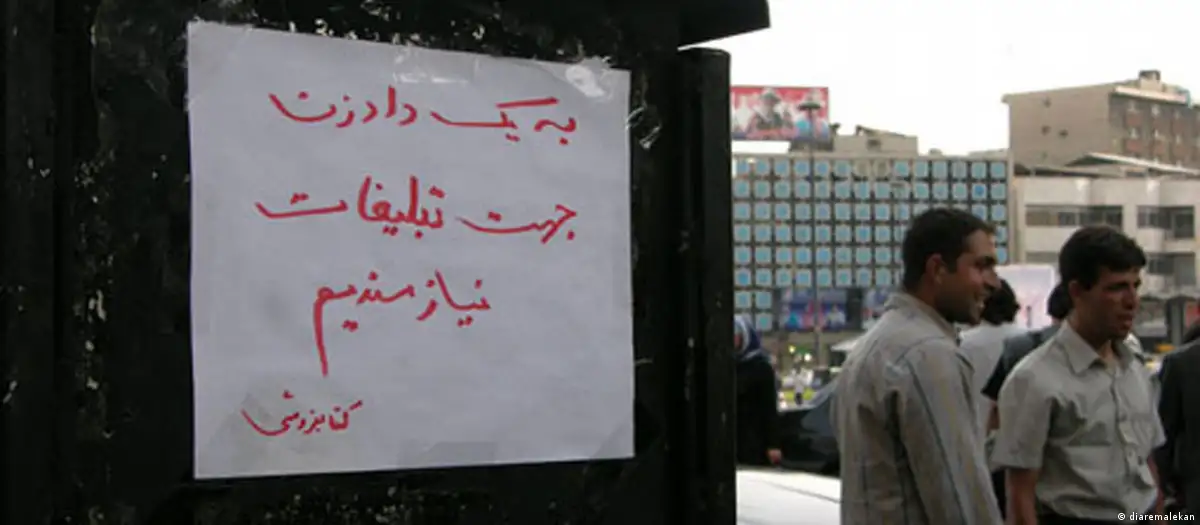 به یک دادزن
جهت تبلیغات
نیازمندیم
کتابفروشی
© diaremalekan